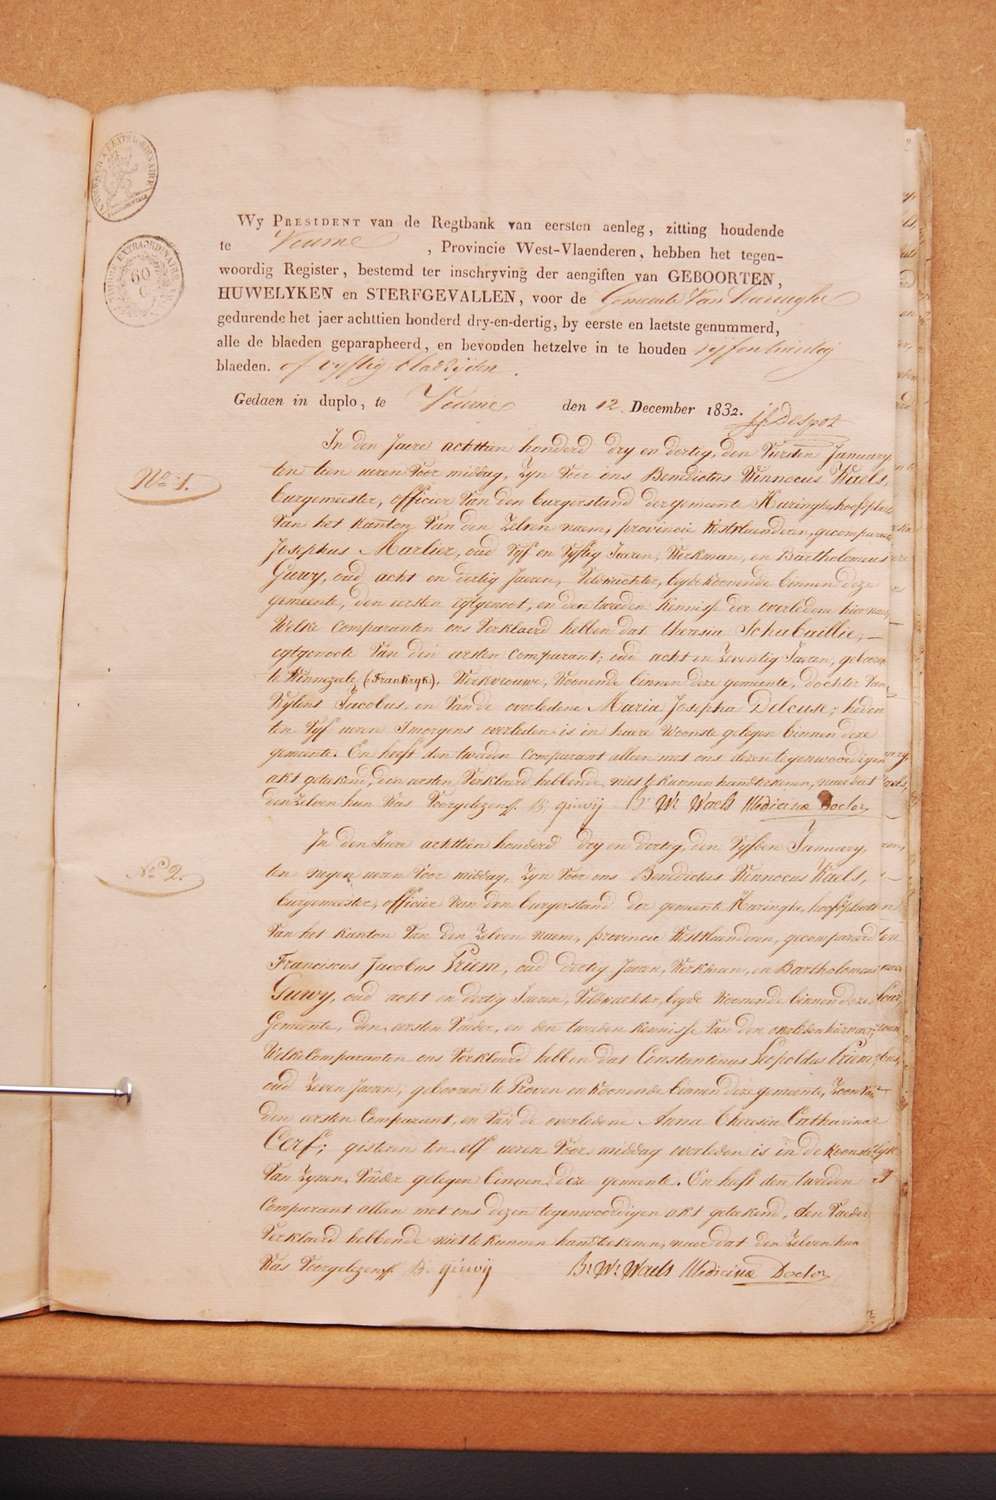 Wy PRESIDENT van de Regtbank van eersten aenleg, zitting houdende
te Veurne, Provincie West-Vlaenderen, hebben het tegen-
woordig Register, bestemd ter inschryving der aengiften van GEBOORTEN,
HUWELYKEN en STERFGEVALLEN, voor de Gemeente van Haeringhe
gedurende het jaer achttien honderd dry-en-dertig, by eerste en laetste genummerd,
alle de blaeden geparapheerd, en bevonden hetzelve in te houden vyfentwintig
blaeden. of vyftig bladzyden.
Gedaen in duplo, te Veurne den 12 December 1832.
No. 1.
In den Jaere achttien honderd dry en dertig, den Vierden January
ten tien uren voor middag, Zyn voor ons Benedictus Winnocus Waels,
burgemeester, officier van den burgerstand der gemeente Haringhe hoofdplae
van het kanton van den Zelven naem, provincie Westvlaenderen, gecompareer
Josephus Marlier, oud vyf en vyftig Jaeren, Werkman, en Bartholomeus
Guwy, oud acht en dertig Jaeren, Veldwachter, beyde Woonende binnen deze
gemeente, den eersten egtgenoot, en den tweeden kennisse der overledene hiernaer,
Welke Comparanten ons Verklaerd hebben dat theresia Schabaillie,
egtgenote van den eersten comparant; oud acht en Zeventig Jaeren, geboore
te Winnezeele (Frankryk), Werkvrouwe, Woonende binnen deze gemeente, dochter van
Wylent Jacobus, en van de overledene Maria Josepha Delcuse; heden
ten vyf uren Smorgens overleden is in haere Woonste gelegen binnen deze
gemeente. En heeft den tweeden comparant alleen met ons dezen tegenwoordigen
akt getekend, den eersten Verklaerd hebbende niet te kunnen handtekenen, naer dat
den Zelven hun Was Voorgelezen. B. guwij B. W. Waels Medicinæ Doctor
No. 2.
In den Jaere achttien honderd dry en dertig, den Vyfden January,
ten negen uren voor middag, Zyn voor ons Benedictus Winnocus Waels,
burgemeester, officier van den burgerstand der gemeente Haringhe, hoofdplaets
van het kanton van den Zelven naem, provincie Westvlaenderen, gecompareerd
Franciscus Jacobus Priem, oud dertig Jaeren, Werkman, en Bartholomeus
Guwy, oud acht en dertig Jaeren, Veldwachter, beyde Woonende binnen deze
Gemeente, den eersten Vader, en den tweeden kennisse van den overleden hiernaer;
Welke Comparanten ons Verklaerd hebben dat Constantinus Leopoldus Priem,
oud Zeven Jaeren, gebooren te Proven en Woonende binnen deze gemeente, Zoon van
den eersten Comparant, en van de overledene Anna Theresia Catharina
Cerf; gisteren ten elf uren voor middag overleden is in de Woonste
van Zynen Vader gelegen binnen deze gemeente. En heeft den tweeden
Comparant alleen met ons dezen tegenwoordigen akt getekend, den Vader
Verklaerd hebbende niet te kunnen handtekenen, naer dat den Zelven hun
Was Voorgelezen B. guwij B. W. Waels Medicinæ Doctor